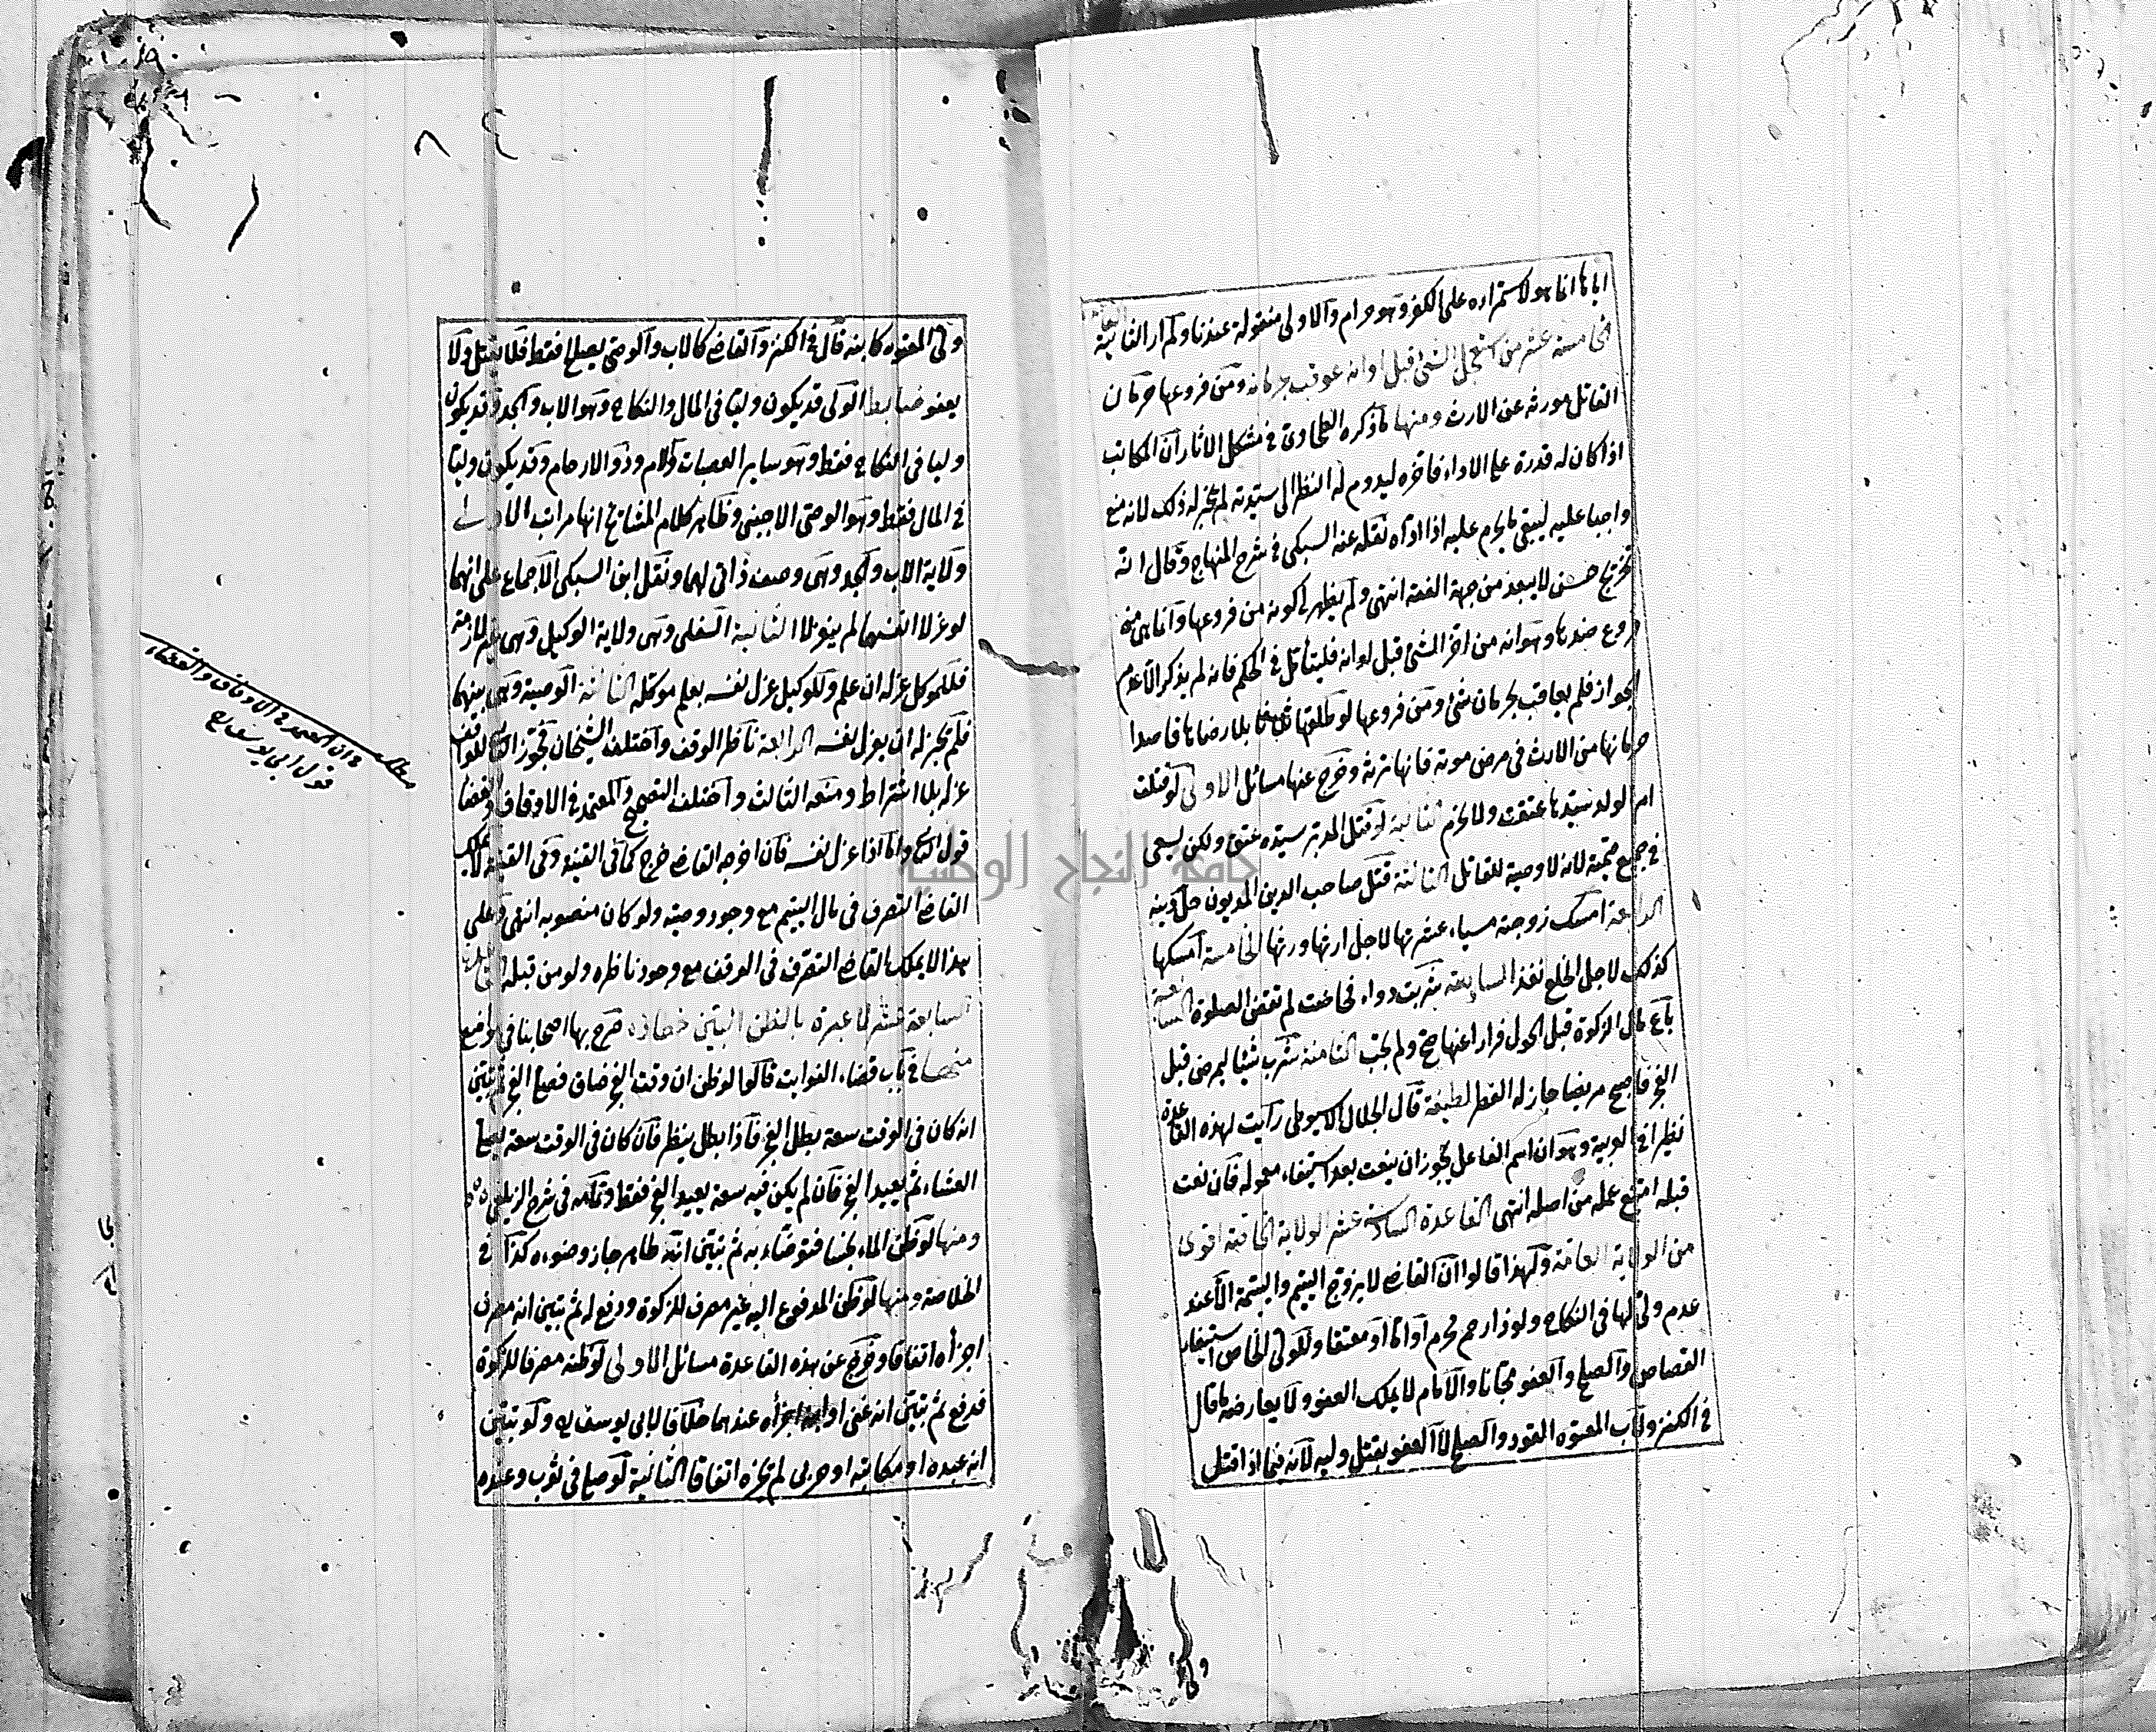 اياها انما هو لاستمراره على الكفر وهو حرام والاولى منقولة عندنا ولم ار الثانية القاعدة
الخامسة عشر من استعجل الشئ قبل اوانه عوقب بحرمانه ومن فروعها حرمان
القاتل مورثه عن الارث ومنها ما ذكره الطحاوى فى مشكل الاثار ان المكاتب
اذا كان له قدرة على الاداء فاخره ليدوم له النظر الى سيدته لم يجز له ذلك لانه منع
واجبا عليه ليبقى ما يحرم عليه اذا اداه نقله عنه السبكى فى شرح المنهاج وقال انه
تخريج حسن لا يبعد من جهة الفقه انتهى ولم يظهر لى كونه من فروعها وانما هى من
فروع ضدها وهو انه من اخر الشئ قبل اوانه فليتأمل فى الحكم فانه لم يذكر الا عدم
الجواز فلم يعاقب بحرمان شئ ومن فروعها لو طلقها ثلاثا بلا رضاها قاصدا
حرمانها من الارث فى مرض موته فانها ترثه وخرج عنها مسائل الاولى لو قتلت
ام الولد سيدها عتقت ولا تحرم الثانية لو قتل المدبر سيده عتق ولكن يسعى
فى جميع قيمته لانه لا وصية للقاتل الثالثة قتل صاحب الدين المديون حل دينه
الرابعة امسك زوجته مسياء عشرتها لاجل ارثها ورثها الخامسة امسكها
كذلك لاجل الخلع نفذ السابعة شربت دواء فحاضت لم تقض الصلوة السابعة
باع مال الزكوة قبل الحول فرارا عنها صح ولم تجب الثامنة شرب شيئا ليمرض قبل
الفجر فاصبح مريضا جاز له الفطر لطيفة قال الجلال الاسيوطى رأيت لهذه القاعدة
نظيرا فى العربية وهو ان اسم الفاعل يجوز ان ينعت بعد استيفاء معموله فان نعت
قبله امتنع عمله من اصله انتهى القاعدة السادسة عشر الولاية الخاصة اقوى
من الولاية العامة ولهذا قالوا ان القاضى لا يزوج اليتيم واليتيمة الا عند
عدم ولى لها فى النكاح ولو ذا رحم محرم او اما او معتقا وللولى الخاص استيفاء
القصاص والصلح والعفو مجانا والامام لا يملك العفو ولا يعارضه ما قال
فى الكنز ولاب المعتوه القود والصلح لا العفو بقتل وليه لانه فيما اذا قتل
ولى المعتوه كابنه قال فى الكنز والقاضى كالاب والوصى يصلح فقط فلا يقتل ولا
يعفو ضابط الولى قد يكون وليا فى المال والنكاح وهو الاب والجد وقد يكون
وليا فى النكاح فقط وهو سائر العصبات والام وذو الارحام وقد يكون وليا
فى المال فقط وهو الوصى الاجنبى وظاهر كلام المشائخ انها مراتب الاولى
ولاية الاب والجد وهى وصف ذاتى لهما ونقل ابن السبكى الاجماع على انهما
لو عزلا انفسهما لم ينعزلا الثانية السفلى وهى ولاية الوكيل وهى غير لازمة
فللموكل عزله ان علم وللوكيل عزل نفسه بعلم موكله الثالثة الوصية وهى بينهما
فلم يجز له ان يعزل نفسه الرابعة ناظر الوقف واختلف الشيخان فجوز الثانى للواقف
عزله بلا اشتراط ومنعه الثالث واختلف التصحيح والمعتمد فى الاوقاف والقضاء
قول الثانى واما اذا عزل نفسه فان اخرجه القاضى خرج كما فى القنية وفى القنية لا يملك
القاضى التصرف فى مال اليتيم مع وجود وصيه ولو كان منصوبه انتهى وعلى
هذا لا يملك القاضى التصرف فى الوقف مع وجود ناظره ولو من قبله القاعدة
السابعة عشر لا عبرة بالظن البين خطاؤه صرح بها اصحابنا فى مواضع
منها فى باب قضاء الفوايت قالوا لو ظن ان وقت الفجر ضاق فصلى الفجر ثم تبين
انه كان فى الوقت سعة بطل الفجر فاذا بطل ينظر فان كان فى الوقت سعة يصلى
العشاء ثم يعيد الفجر فان لم يكن فيه سعة يعيد الفجر فقط وتمامه فى شرح الزيلعى
ومنها لو ظن الماء نجسا فتوضاء به ثم تبين انه طاهر جاز وضوءه كذا فى
الخلاصة ومنها لو ظن المدفوع اليه غير مصرف للزكوة ودفع له ثم تبين انه مصرف
اجزأه اتفاقا وخرج عن هذه القاعدة مسائل الاولى لو ظنه مصرفا للزكوة
فدفع ثم تبين انه غنى او ابنه اجزأه عندهما خلافا لابى يوسف ره ولو تبين
انه عبده او مكاتبه او حربى لم يجزه اتفاقا الثانية لو صلى فى ثوب وعنده
مطلب
فى ان المعتمد فى الاوقاف والقضاء
قول ابى يوسف رح
جامعة النجاح الوطنية